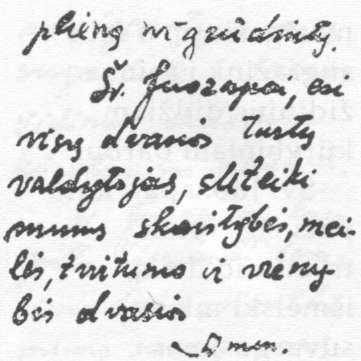 plieną ir grūdintų.
Šv. Juozapai, esi
visų dvasios turtų
valdytojas, suteiki
mums skaistybės, mei-
lės, tvirtumo ir vieny-
bės dvasios